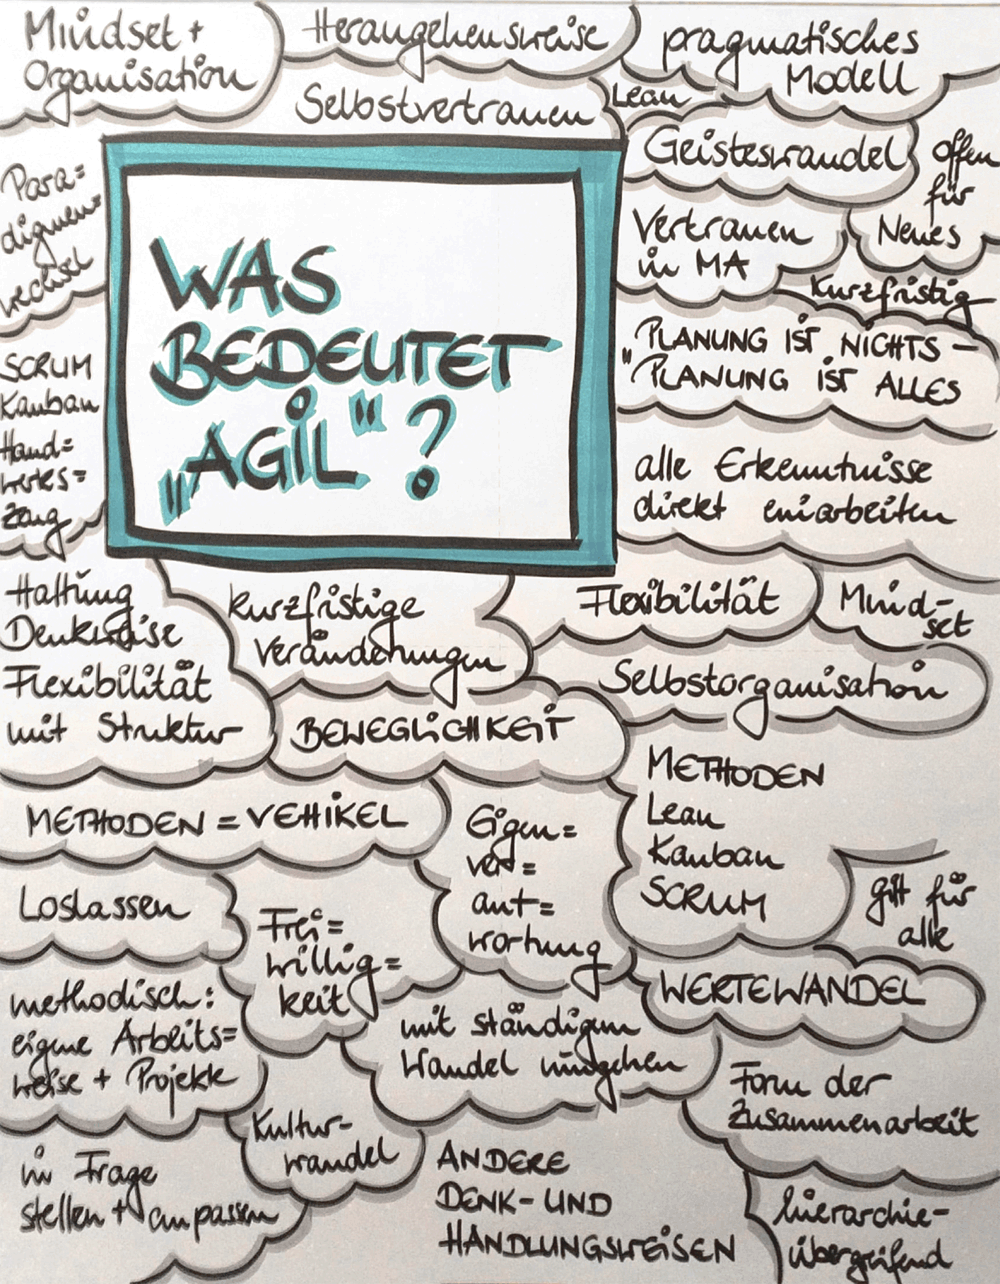 Mindset +
Organisation
Herangehensweise
Selbstvertrauen
pragmatisches
Modell
Lean
Geisteswandel
offen
für
Neues
Para=
digmen=
wechsel
Vertrauen
in MA
kurzfristig
WAS
BEDEUTET
„AGIL“?
"PLANUNG IST NICHTS –
PLANUNG IST ALLES
SCRUM
Kanban
Hand=
werks=
zeug
alle Erkenntnisse
direkt einarbeiten
Haltung
Denkweise
Flexibilität
mit Struktur
kurzfristige
Veränderungen
Flexibilität
Mind-
set
Selbstorganisation
BEWEGLICHKEIT
METHODEN
Lean
Kanban
SCRUM
METHODEN = VEHIKEL
Eigen=
ver=
ant=
wortung
gilt für
alle
Loslassen
Frei=
willig=
keit
WERTEWANDEL
methodisch:
eigene Arbeits=
weise + Projekte
mit ständigem
Wandel umgehen
Form der
Zusammenarbeit
Kultur-
wandel
in Frage
stellen + anpassen
ANDERE
DENK- UND
HANDLUNGSWEISEN
hierarchie-
übergreifend